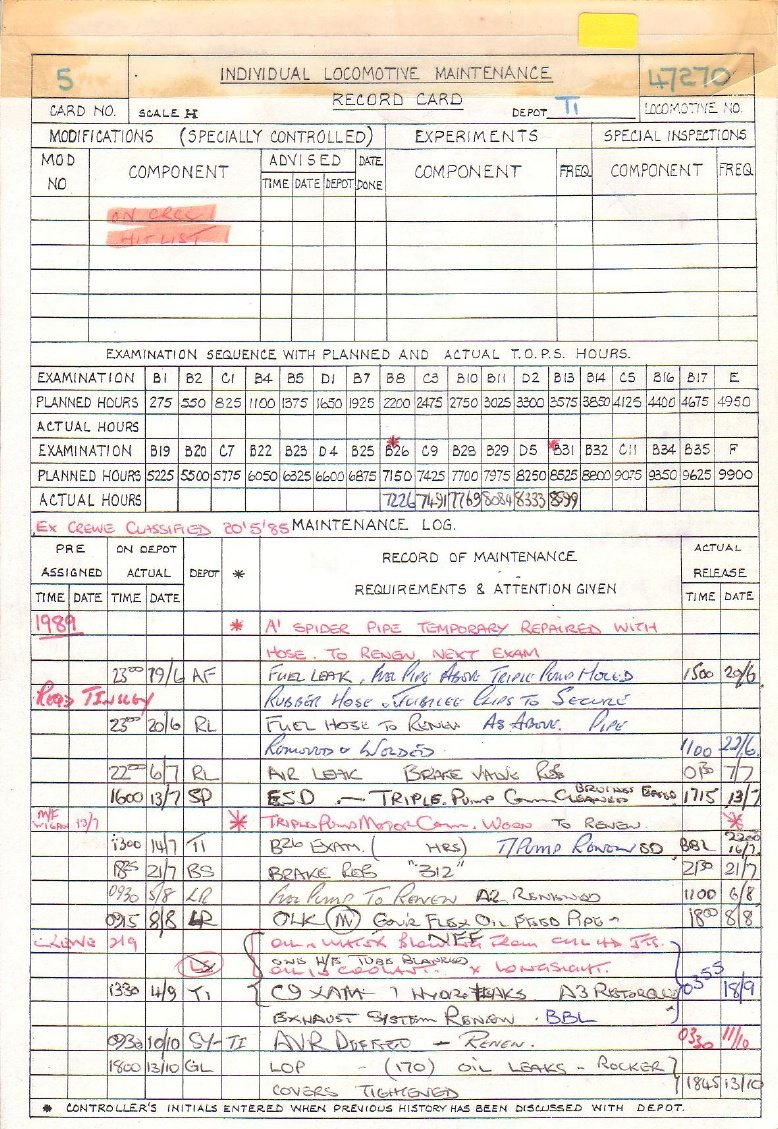 5 INDIVIDUAL LOCOMOTIVE MAINTENANCE 47270
CARD NO. SCALE H RECORD CARD DEPOT TI LOCOMOTIVE NO.
MODIFICATIONS (SPECIALLY CONTROLLED) EXPERIMENTS SPECIAL INSPECTIONS
MOD NO COMPONENT ADVISED DATE DONE COMPONENT FREQ COMPONENT FREQ
TIME DATE DEPOT
ON CREC
HIT LIST
EXAMINATION SEQUENCE WITH PLANNED AND ACTUAL T.O.P.S. HOURS.
EXAMINATION B1 B2 C1 B4 B5 D1 B7 B8 C3 B10 B11 D2 B13 B14 C5 B16 B17 E
PLANNED HOURS 275 550 825 1100 1375 1650 1925 2200 2475 2750 3025 3300 3575 3850 4125 4400 4675 4950
ACTUAL HOURS
EXAMINATION B19 B20 C7 B22 B23 D4 B25 *B26 C9 B28 B29 D5 *B31 B32 C11 B34 B35 F
PLANNED HOURS 5225 5500 5775 6050 6325 6600 6875 7150 7425 7700 7975 8250 8525 8800 9075 9350 9625 9900
ACTUAL HOURS 7226 7491 7769 8084 8333 8599
EX CREWE CLASSIFIED 20'5'85 MAINTENANCE LOG.
PRE ASSIGNED ON DEPOT ACTUAL DEPOT * RECORD OF MAINTENANCE ACTUAL RELEASE
REQUIREMENTS & ATTENTION GIVEN
TIME DATE TIME DATE TIME DATE
1989 * A' SPIDER PIPE TEMPORARY REPAIRED WITH
HOSE. TO RENEW NEXT EXAM
2300 19/6 AF FUEL LEAK, FUEL PIPE ABOVE TRIPLE PUMP HOLED 1500 20/6
REQD TINSLEY RUBBER HOSE & JUBILEE CLIPS TO SECURE
2300 20/6 RL FUEL HOSE TO RENEW AS ABOVE. PIPE
REMOVED & WELDED 1100 22/6
2200 6/7 RL AIR LEAK BRAKE VALVE 0130 7/7
1600 13/7 SP ESD. — TRIPLE PUMP COMM CLEANED BRUSHES EASED 1715 13/7
M/F WIGAN 13/7 * TRIPLE PUMP MOTOR COMM. WORN TO RENEW. *
1300 14/7 TI B26 EXAM. ( HRS) T/PUMP RENEWED BBL 2200 16/7
1835 21/7 BS BRAKE "312" 2130 21/7
0930 5/8 LR FUEL PUMP TO RENEW A2 RENEWED 1100 6/8
0915 8/8 LR OLK GOV'R FLEX OIL FEED PIPE 1800 8/8
CREWE 2/9 OIL & WATER
LS ONE H/E TUBE BLANKED
OIL IN COOLANT. x LONGSIGHT.
1330 4/9 TI C9 XAM — 1 HYDRO LEAKS A3 RESTORED 0355 18/9
EXHAUST SYSTEM RENEW. BBL
0930 10/10 SY-TI AVR DEFFED — RENEW. 0330 11/10
1800 13/10 GL LOP - (170) OIL LEAKS - ROCKER
COVERS TIGHTENED 1845 13/10
* CONTROLLER'S INITIALS ENTERED WHEN PREVIOUS HISTORY HAS BEEN DISCUSSED WITH DEPOT.